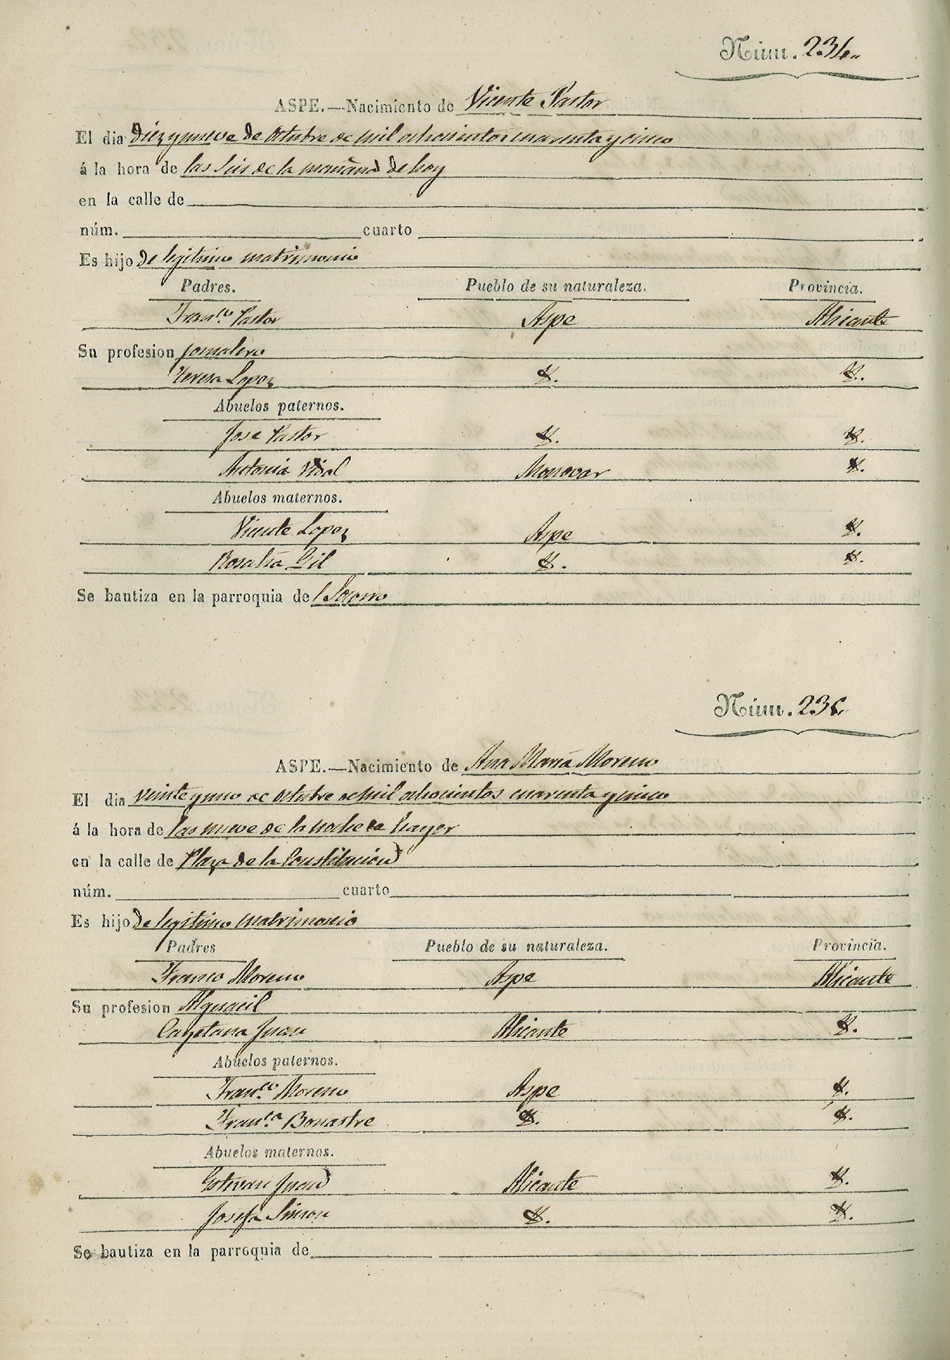 Núm. 234
ASPE.—Nacimiento de Vicente Pastor
El dia diez y nueve de Octubre de mil ochocientos cuarenta y cinco
á la hora de las seis de la mañana de hoy
en la calle de
núm. cuarto
Es hijo de legitimo matrimonio
Padres. Pueblo de su naturaleza. Provincia.
Franco Pastor Aspe Alicante
Su profesion jornalero
Teresa Lopez Y. Y.
Abuelos paternos.
Jose Pastor Y. Y.
Antonia Vidal Monovar Y.
Abuelos maternos.
Vicente Lopez Aspe Y.
Rosalia Gil Y. Y.
Se bautiza en la parroquia de
Núm. 23
ASPE.—Nacimiento de Ana Maria Moreno
El dia veinte y uno de octubre de mil ochocientos cuarenta y cinco
á la hora de las nueve de la noche de
en la calle de Plaza de la Constitucion
núm. cuarto
Es hijo de legitimo matrimonio
Padres Pueblo de su naturaleza. Provincia.
Franco Moreno Aspe Alicante
Su profesion Alguacil
Cayetana Juan Alicante Y.
Abuelos paternos.
Franco Moreno Aspe Y.
Franca Bonastre Y. Y.
Abuelos maternos.
Estevan Juan Alicante Y.
Josefa Simon Y. Y.
Se bautiza en la parroquia de